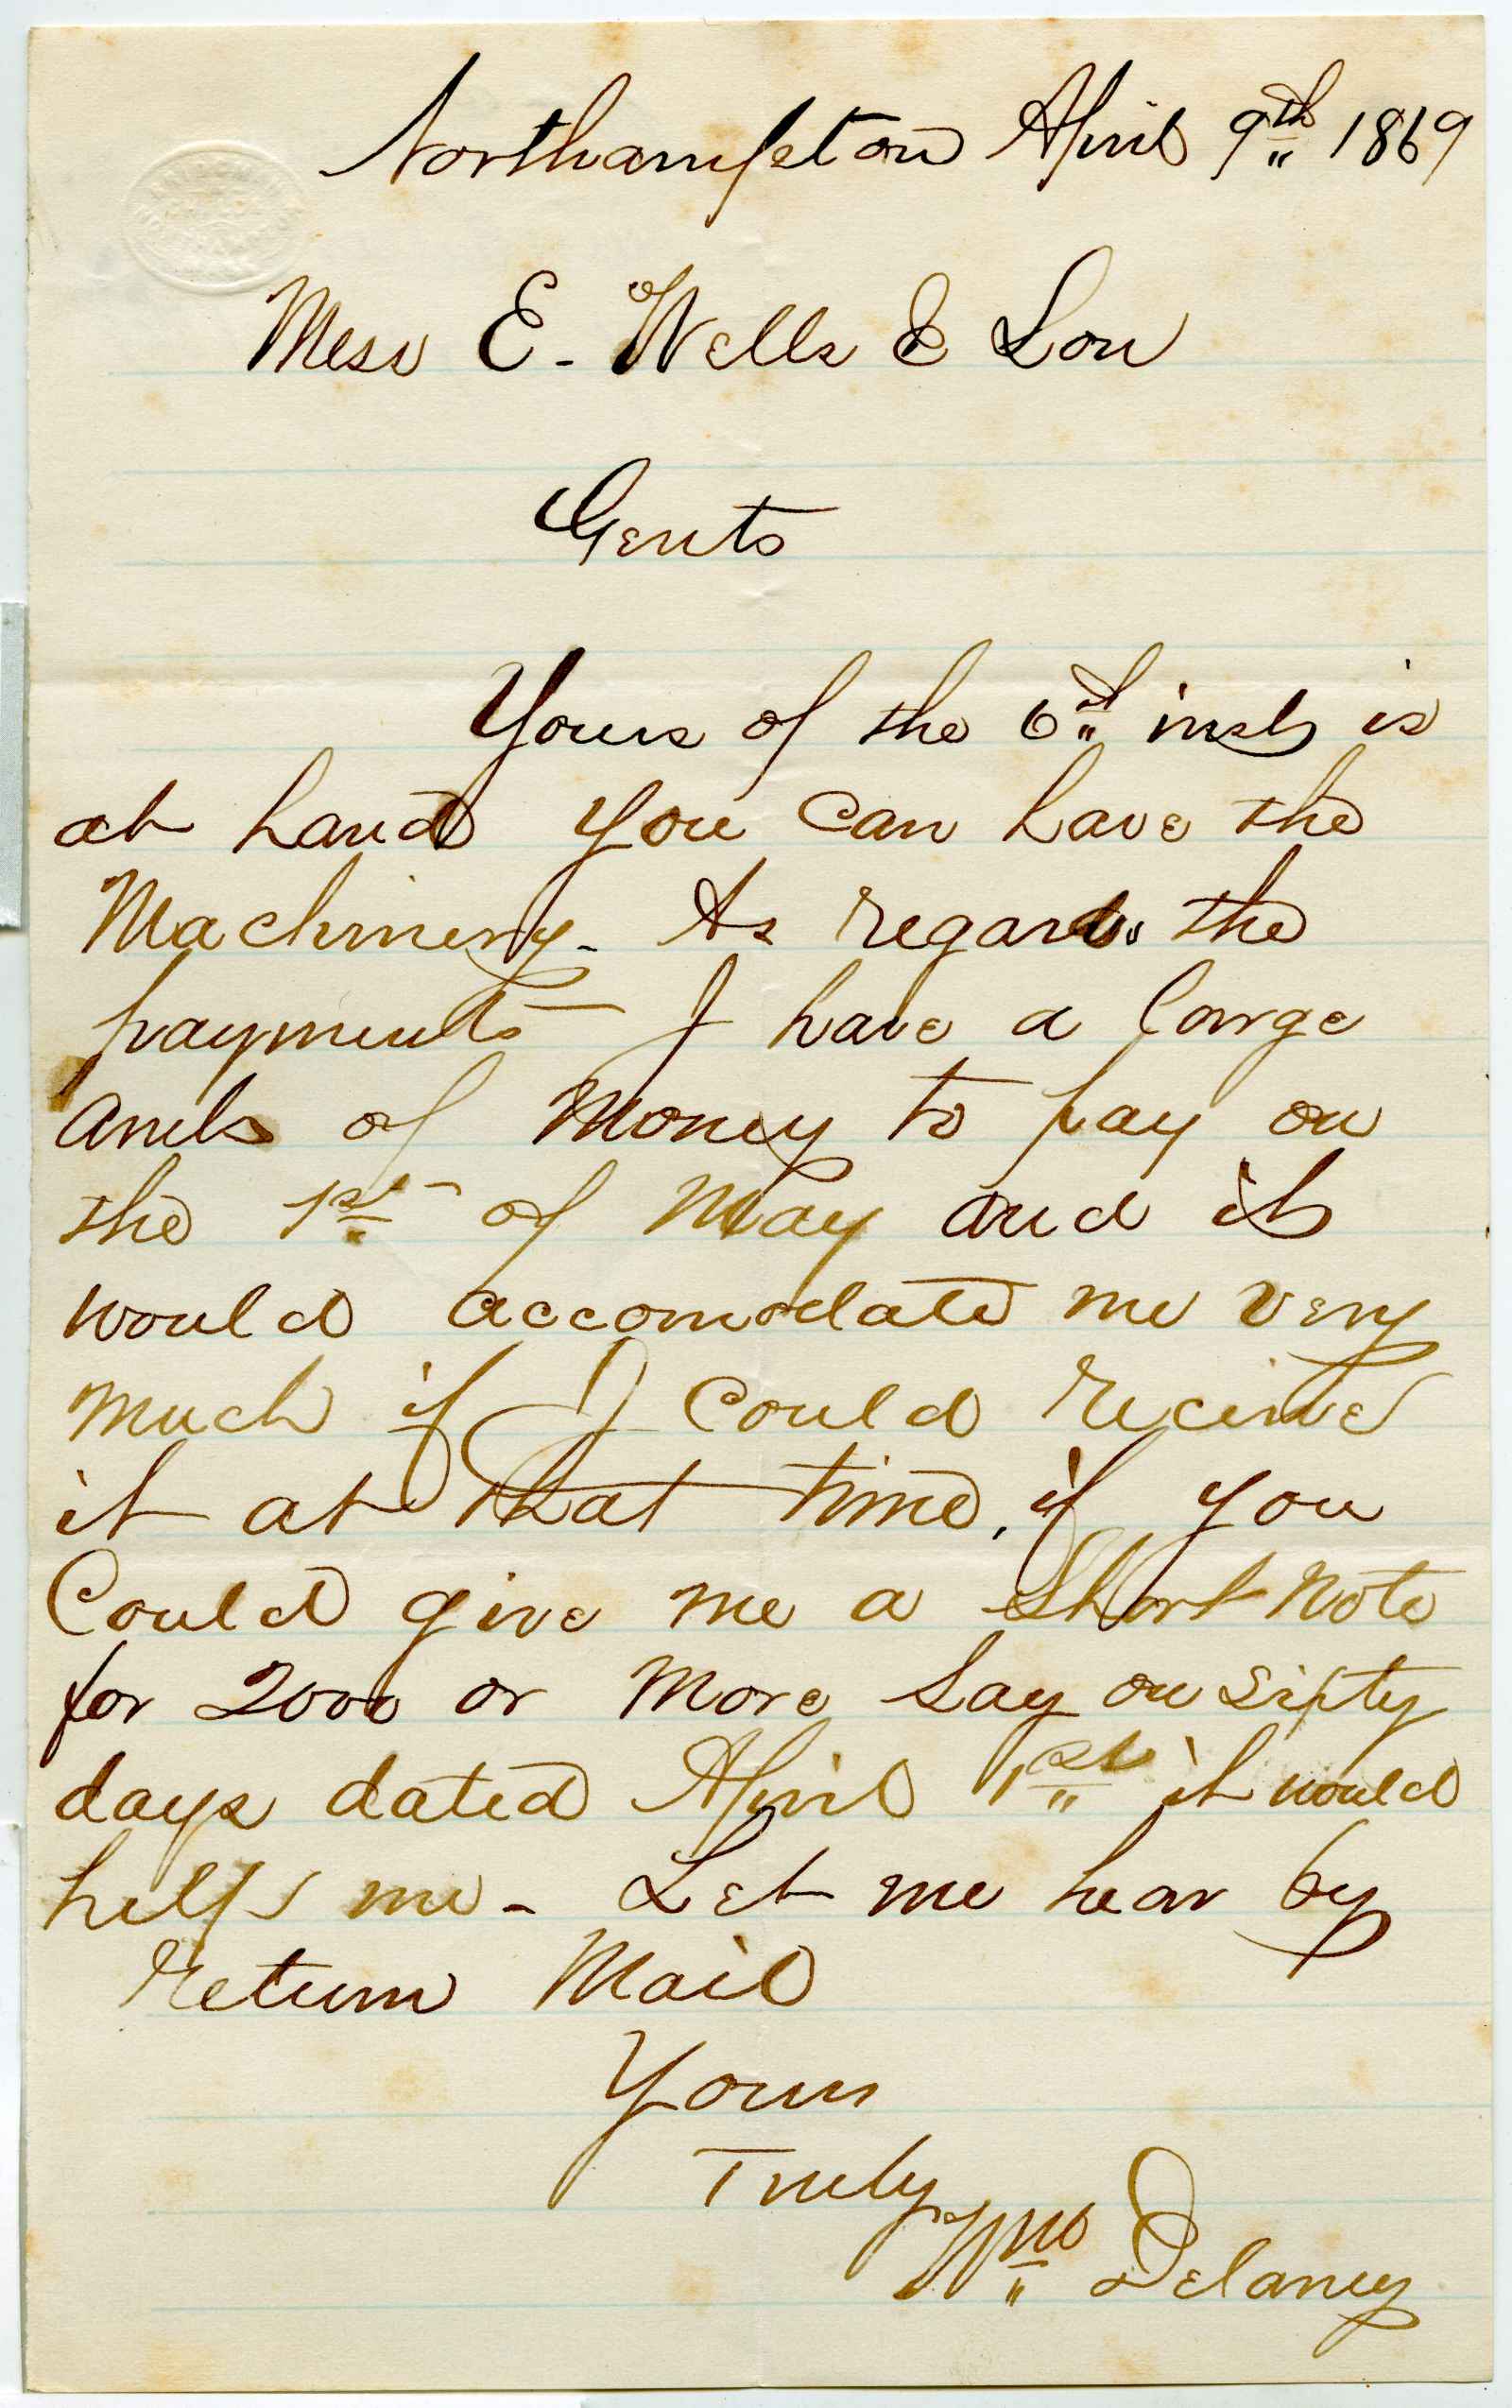 Northampton April 9th 1869
Mess E. Wells & Son
Gents
Yours of the 6th inst is
at hand you can have the
Machinery. As regards the
payments I have a large
Amt of Money to pay on
the 1st of May and it
would accomodate me very
much if I could receive
it at that time, if you
Could give me a Short Note
for 2000 or More Say on Sixty
days dated April 1st it would
help me - Let me hear by
return Mail
Yours
Truly
Wm Delaney